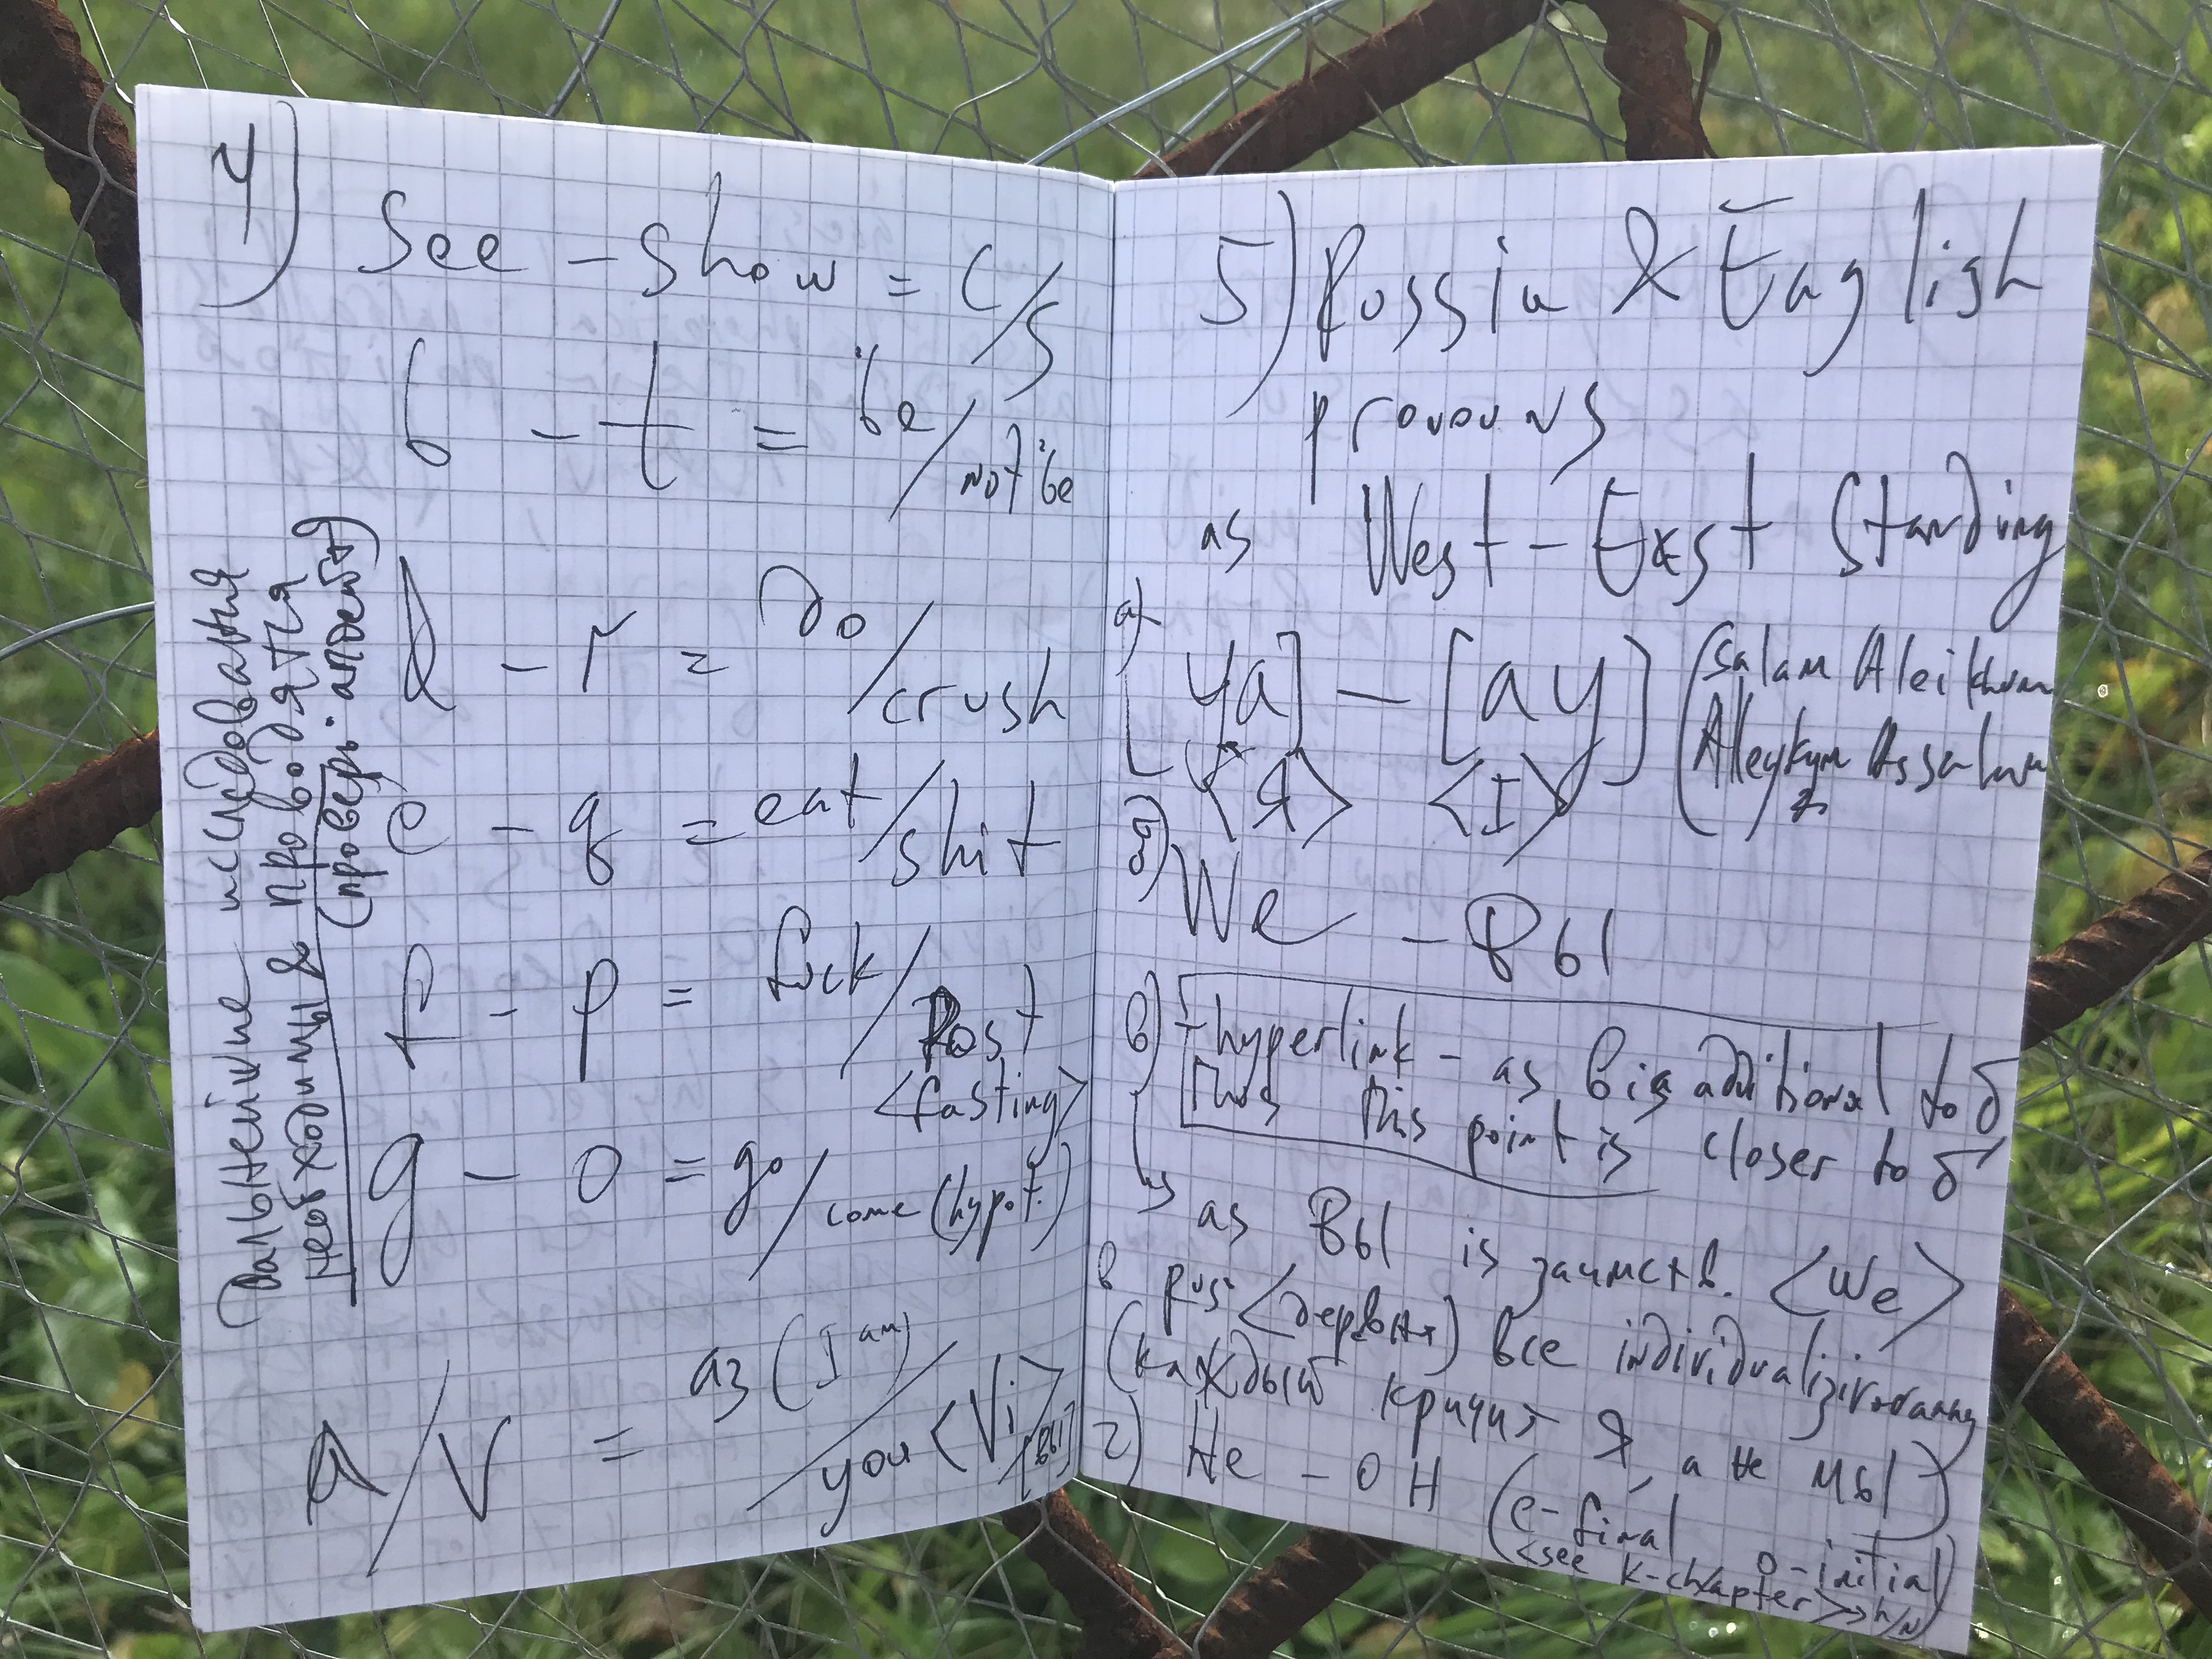 4)
See – show = c/s
b – t = be/not be
d – r = do/crush
e – q = eat/shit
f – p = fuck/Post
<fasting>
g – o = go/come (hypot.)
a/v = аз (I am)/you <Vi/[вы]>
Дальнейшие исследования
необходимы & проводятся
(проверь: апдейт)
5) Russia & English
pronouns
as West – East Standing
а) [ya] – [ay] (Salam Aleikhum
Alleykym Assalam
<Я> <I>
б) We – Вы
в) + hyperlink – as big additional to б
Thus this point is closer to б'
as Вы is заимств. <We>
в рus <деревня> все individualizirovanny
(каждый кричит Я, а не мы)
г) He – ОН (e-final o-initial)
<see k-chapter> → h/н